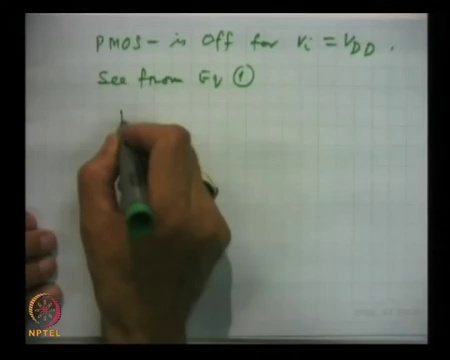 PMOS - is off for Vi = VDD.
See from Eq ①
NPTEL